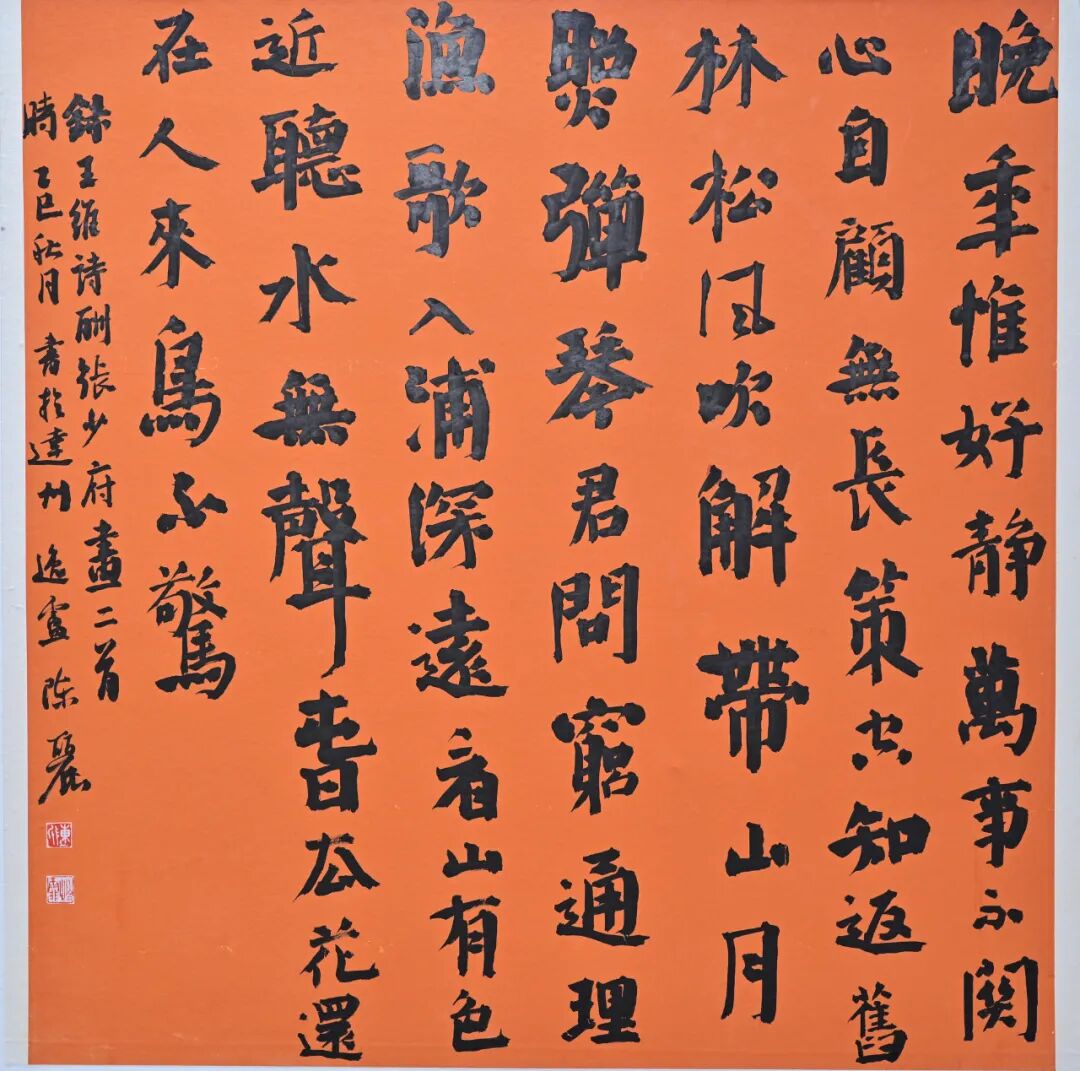 晚年惟好靜萬事不關
心自顧無長策空知返舊
林松風吹解帶山月
照彈琴君問窮通理
漁歌入浦深遠看山有色
近聽水無聲春去花還
在人來鳥不驚
錄王維詩酬張少府畫二首
時乙巳秋月書於達州逸盧陈麗